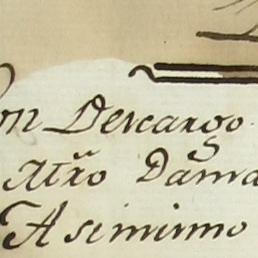 on Descargo
Mr̃o Dama
Asimismo